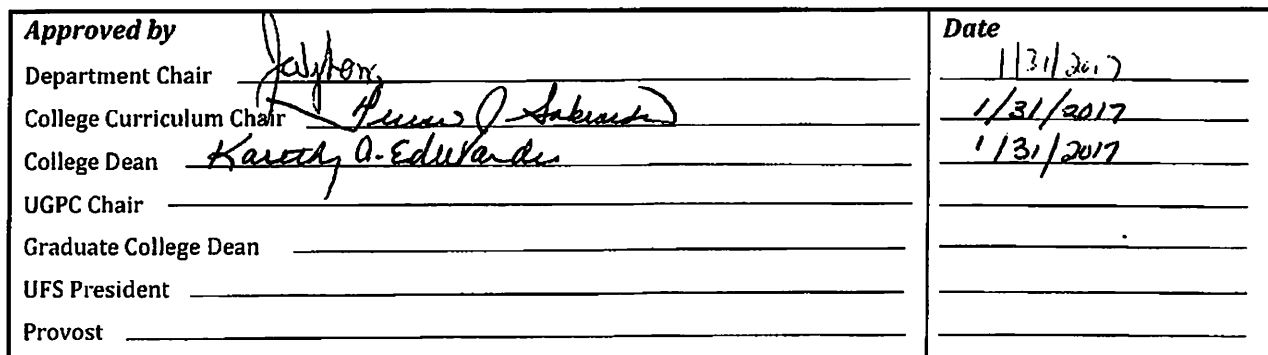 Approved by Date
Department Chair 1/31/2017
College Curriculum Chair 1/31/2017
College Dean A. Edwards 1/31/2017
UGPC Chair
Graduate College Dean
UFS President
Provost